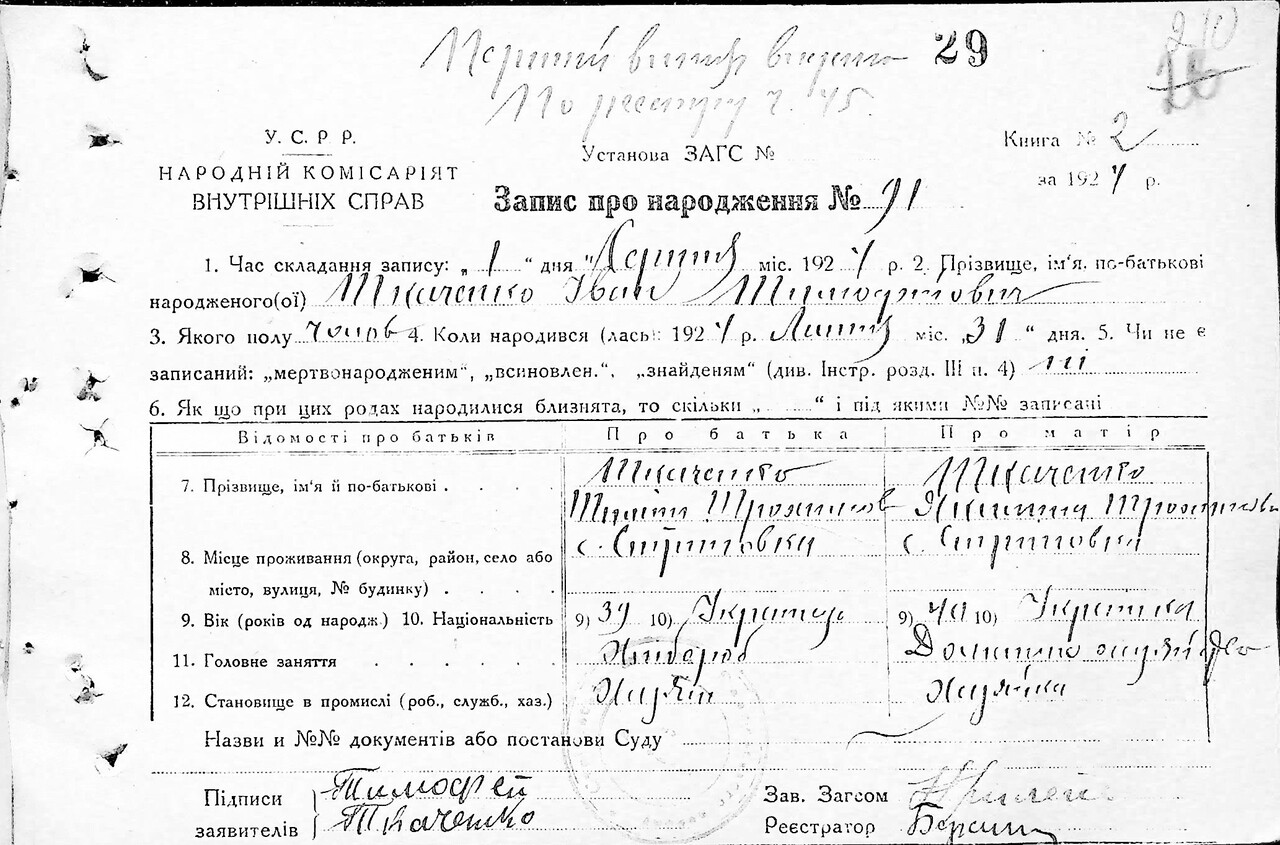 Перший витяг видано 29
По реєстру ч. 45.
У. С. Р Р.
НАРОДНІЙ КОМІСАРІЯТ
ВНУТРІШНІХ СПРАВ
Установа ЗАГС №
Книга № 2
за 1927 р.
Запис про народження № 91
1. Час складання запису: „ 1 “ дня "Серпня міс. 1927 р. 2. Прізвище, ім‘я, по-батькові
народженого(ої) Ткаченко Іван Тимофійович
3. Якого полу чолов 4. Коли народився (лась): 1927 р. Липня міс. „31 “ дня. 5. Чи не є
записаний: „мертвонародженим“, „всиновлен.“, „знайденям“ (див. Інстр. розд. III п. 4) ні
6. Як що при цих родах народилися близнята, то скільки „ “ і під якими №№ записані
Відомості про батьків Про батька Про матір
Ткаченко Ткаченко
7. Прізвище, ім‘я й по-батькові
с. с.
8. Місце проживання (округа, район, село або
місто, вулиця, № будинку)
9. Вік (років од народж.) 10. Національність 9) 39 10) Українець 9) 40 10) Українка
11. Головне заняття Хлібороб Домашнє
12. Становище в промислі (роб., служб., хаз.) Хазяїн Хазяйка
Назви и №№ документів або постанови Суду
Підписи Тимофей
заявителів Ткаченко
Зав. Загсом
Реєстратор